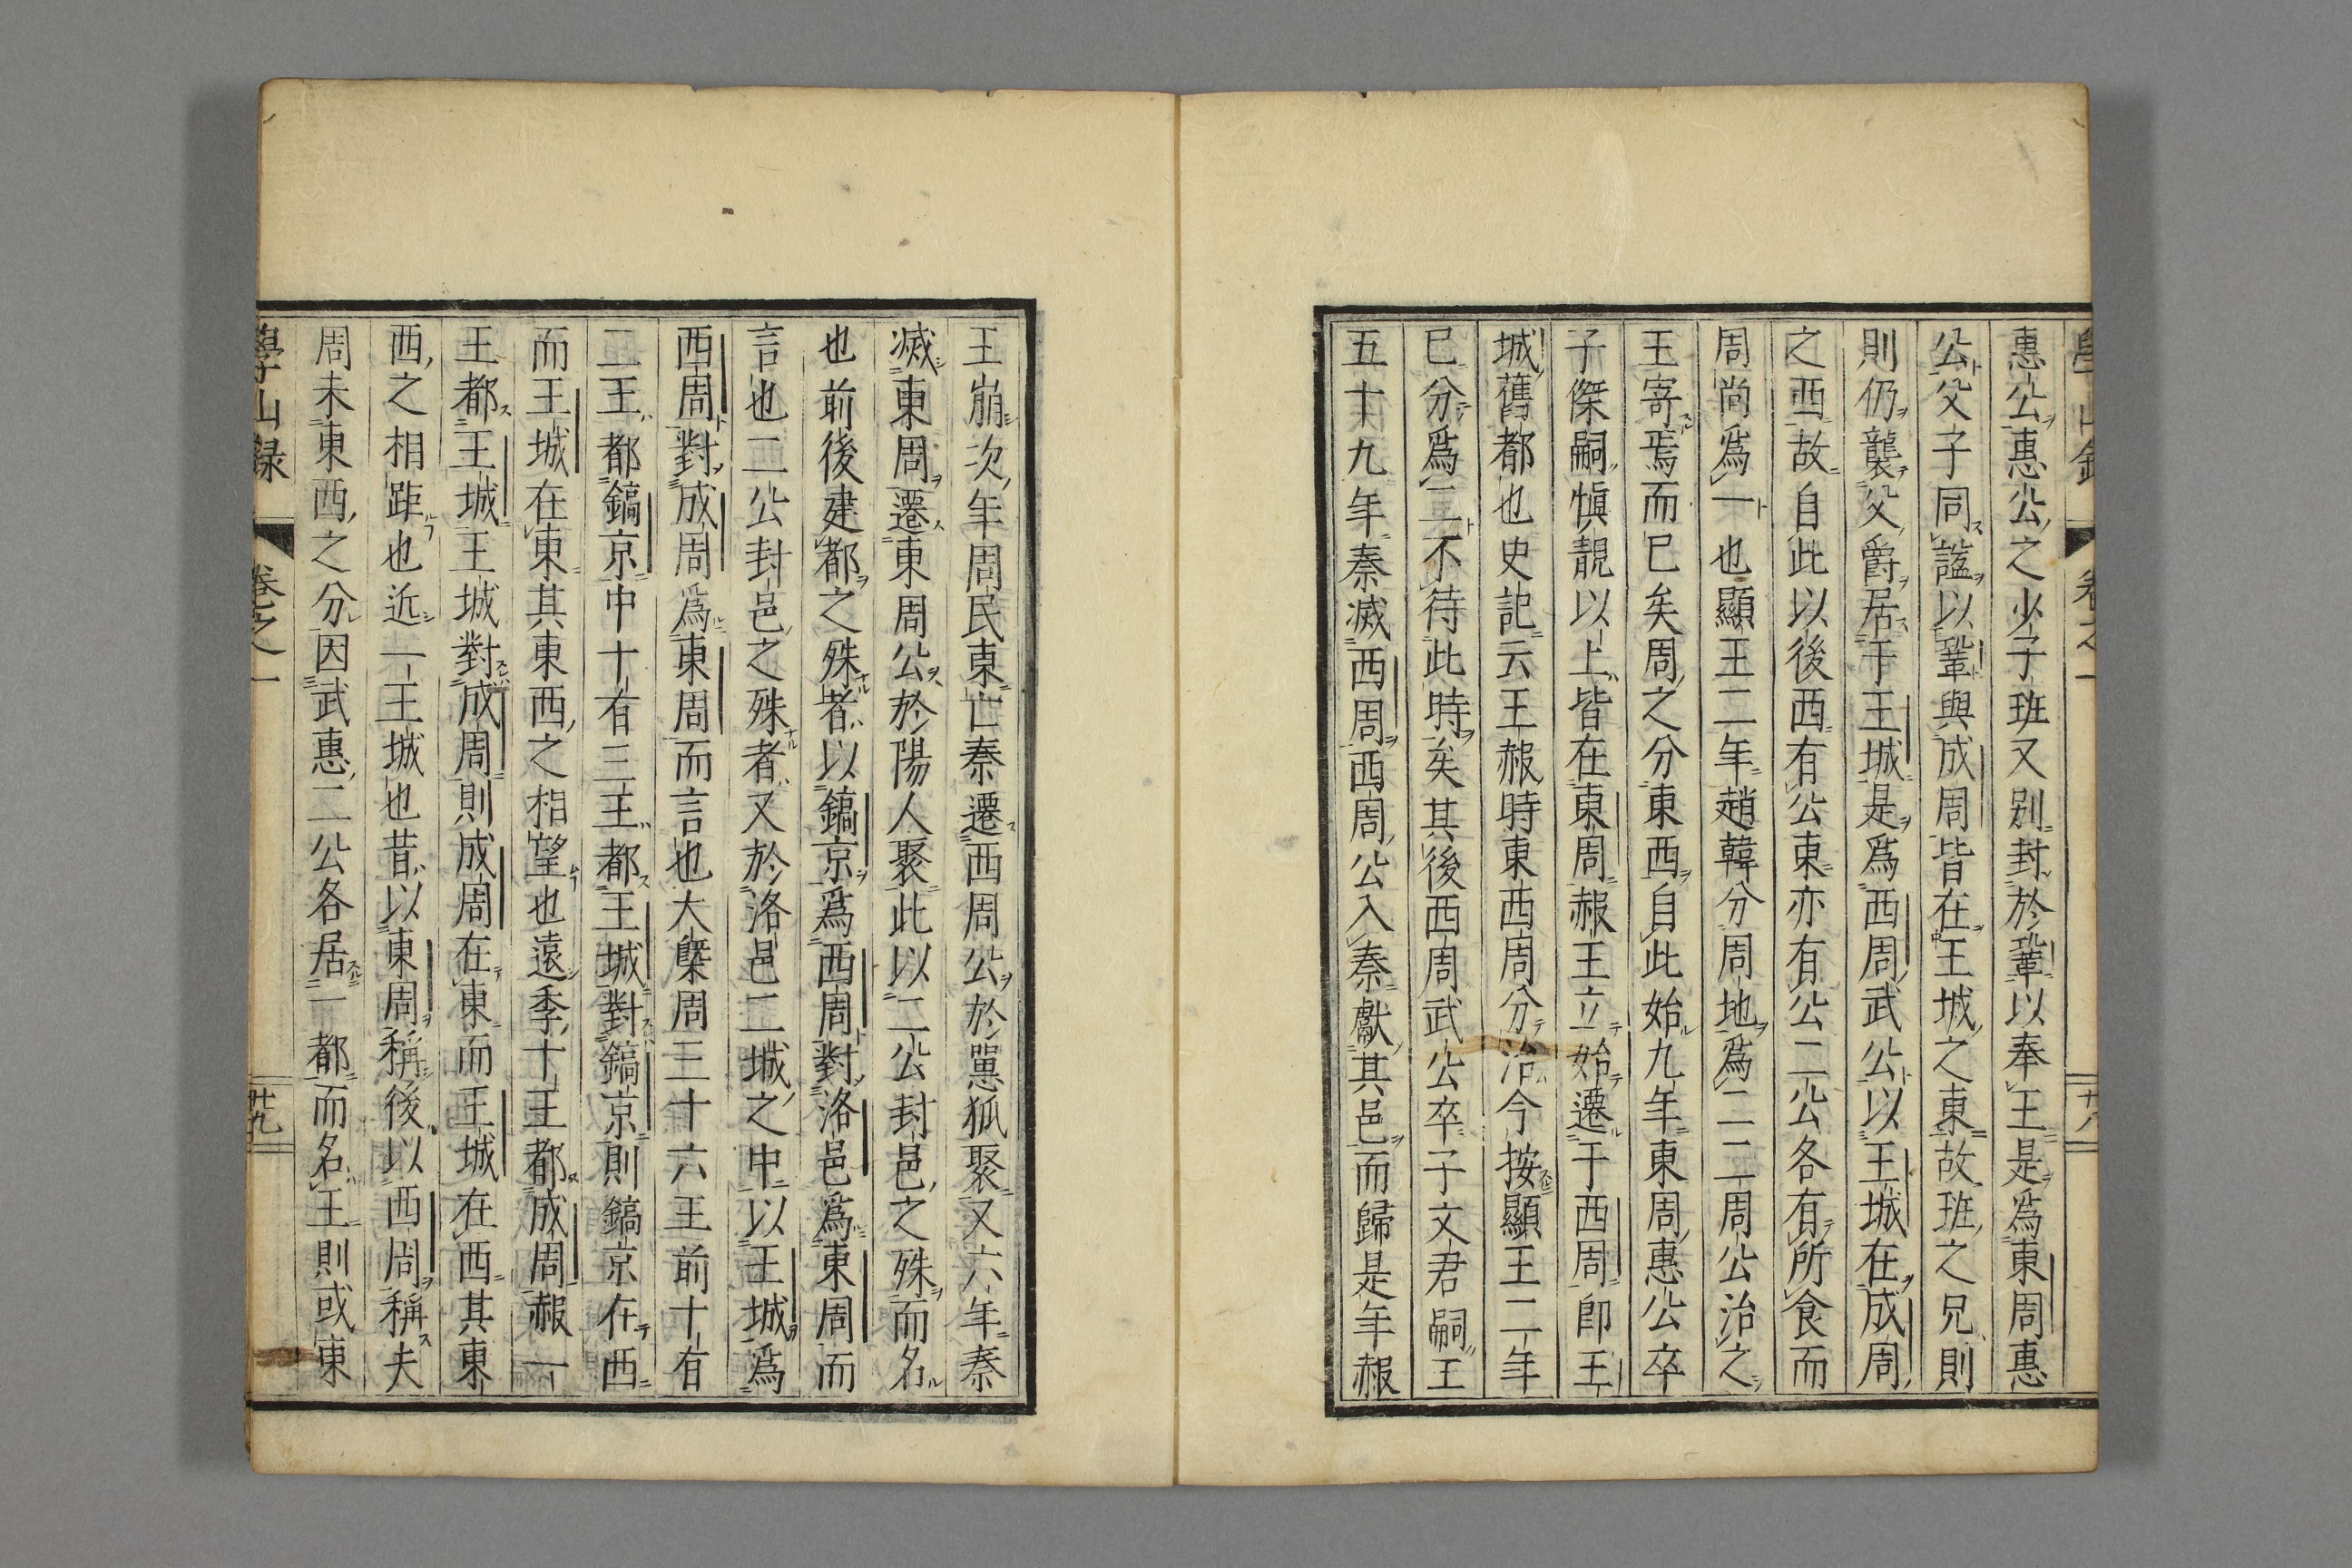 惠公惠公之少子班又別封於鞏以奉王是爲東周惠
公父子同諡以鞏與成周皆在王城之東故班之兄則
則仍襲父爵居于王城是爲西周武公以王城在成周
之西故自此以後西有公東亦有公二公各有所食而
周尚爲一也顯王二年趙韓分周地爲二二周公治之
王寄焉而已矣周之分東西自此始九年東周惠公卒
子傑嗣愼靚以上皆在東周赧王立始遷于西周卽王
城舊都也史記云王赧時東西周分治今按顯王二年
已分爲二不待此時矣其後西周武公卒子文君嗣王
五十九年秦滅西周西周公入秦獻其邑而歸是年赧
王崩次年周民東亡秦遷西周公於㥾狐聚又六年秦
滅東周遷東周公於陽人聚此以二公封邑之殊而名
也前後建都之殊者以鎬京爲西周對洛邑爲東周而
言也二公封邑之殊者又於洛邑二城之中以王城爲
西周對成周爲東周而言也大槩周三十六王前十有
二王都鎬京中十有三王都王城對鎬京則鎬京在西
而王城在東其東西之相望也遠季十王都成周赧一
王都王城王城對成周則成周在東而王城在西其東
西之相距也近一王城也昔以東周稱後以西周稱夫
周未東西之分因武惠二公各居一都而名王則或東
學山錄 卷之一 廿九